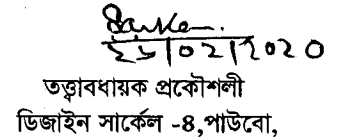 ২৬/০২/২০২০
তত্ত্বাবধায়ক প্রকৌশলী
ডিজাইন সার্কেল -৪,পাউবো,